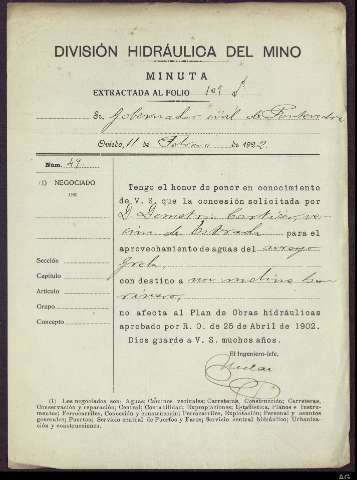 DIVISIÓN HIDRÁULICA DEL MIÑO
MINUTA
EXTRACTADA AL FOLIO 109
Sr. Gobernador civil de Pontevedra
Oviedo, 11 de Febrero de 19
Núm. 49
(1) NEGOCIADO
DE
Sección
Capítulo
Artículo
Grupo
Concepto
Tengo el honor de poner en conocimiento
de V. S. que la concesión solicitada por
D. Demetrio
de Estrada para el
aprovechamiento de aguas del arroyo
Grela
con destino a un molino ha-
rinero,
no afecta al Plan de Obras hidráulicas
aprobado por R. O. de 25 de Abril de 1902.
Dios guarde a V. S. muchos años.
El Ingeniero-jefe,
(1) Los negociados son: Aguas; Caminos vecinales; Carreteras, Construcción; Carreteras,
Conservación y reparación; Central; Contabilidad; Expropiaciones; Estadística, Planos e Instru-
mentos; Ferrocarriles, Concesión y construcción; Ferrocarriles, Explotación; Personal y asuntos
generales; Puertos; Servicio central de Puertos y Faros; Servicio central hidráulico; Urbaniza-
ción y construcciones.
AG